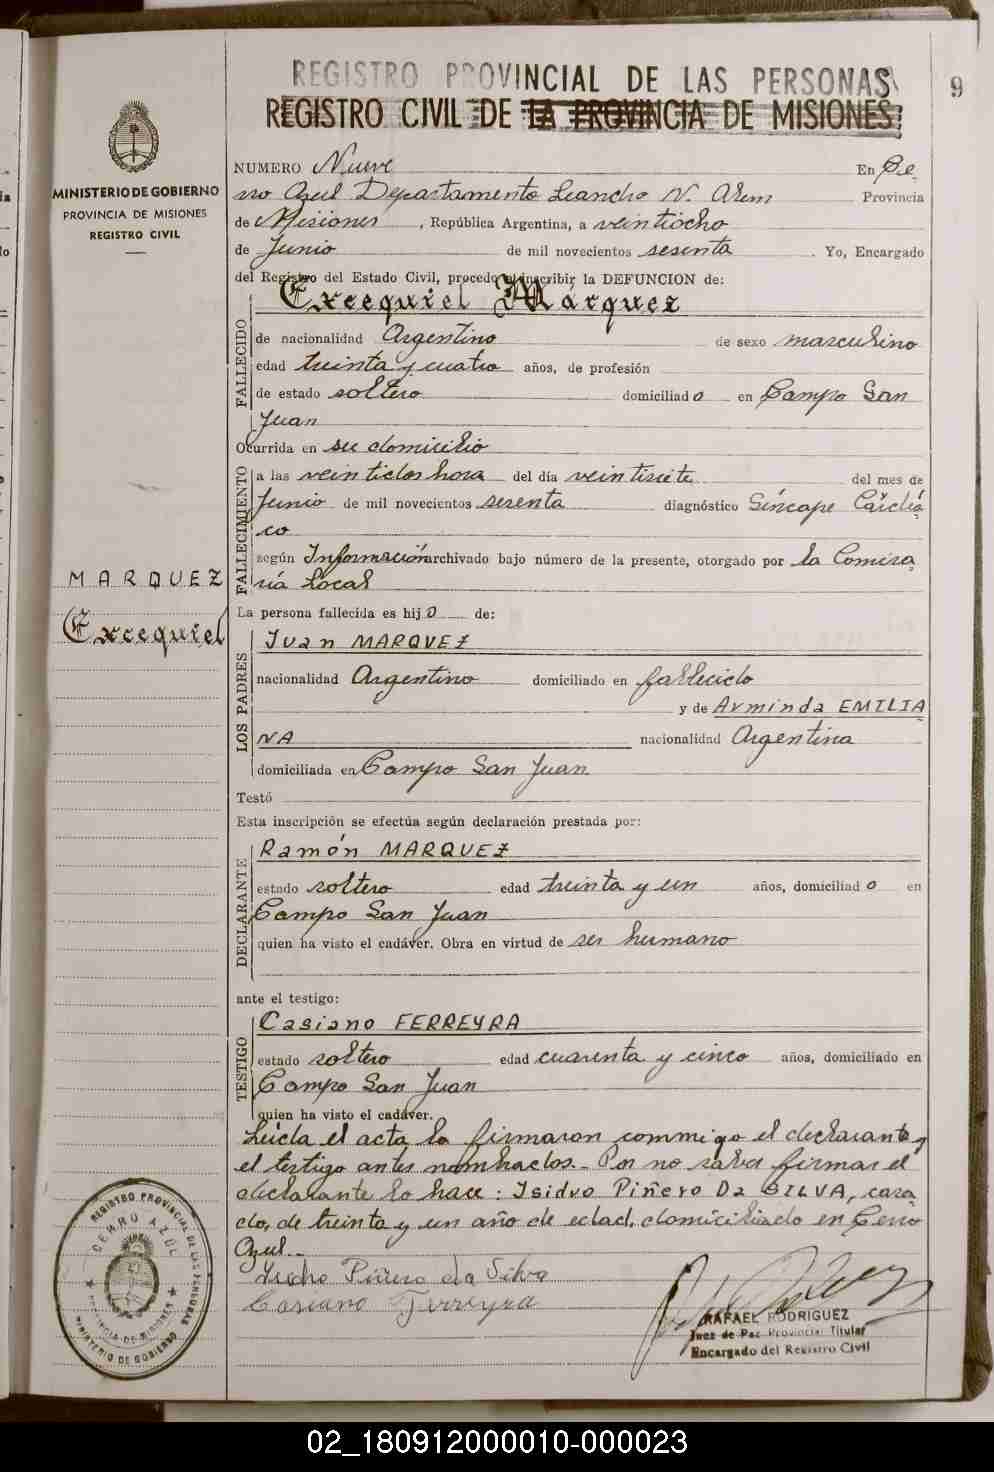 REGISTRO PROVINCIAL DE LAS PERSONAS
REGISTRO CIVIL DE LA PROVINCIA DE MISIONES
9
MINISTERIO DE GOBIERNO
PROVINCIA DE MISIONES
REGISTRO CIVIL
NUMERO Nueve En Ce
rro Azul Departamento Leandro N. Alem Provincia
de Misiones, República Argentina, a veintiocho
de Junio de mil novecientos sesenta. Yo, Encargado
del Registro del Estado Civil, procedo a inscribir la DEFUNCION de:
Excequiel Márquez
FALLECIDO
de nacionalidad Argentino de sexo masculino
edad treinta y cuatro años, de profesión
de estado soltero domiciliado en Campo San
Juan
Ocurrida en su domicilio
FALLECIMIENTO
a las veintidos hora del día veintisiete del mes de
Junio de mil novecientos sesenta diagnóstico Síncope Cardía
co
según Información archivado bajo número de la presente, otorgado por la Comisa
ría Local
MARQUEZ
Excequiel
La persona fallecida es hijo de:
LOS PADRES
Juan MARQUEZ
nacionalidad Argentino domiciliado en fallecido
y de Arminda EMILIA
NA nacionalidad Argentina
domiciliada en Campo San Juan
Testó
Esta inscripción se efectúa según declaración prestada por:
DECLARANTE
Ramón MARQUEZ
estado soltero edad treinta y un años, domiciliado en
Campo San Juan
quien ha visto el cadáver. Obra en virtud de ser hermano
ante el testigo:
TESTIGO
Casiano FERREYRA
estado soltero edad cuarenta y cinco años, domiciliado en
Campo San Juan
quien ha visto el cadáver.
Leída el acta la firmaron commigo el declarante y
el testigo antes nombrados.- Por no saber firmar el
declarante lo hace: Isidro Piñero Da SILVA, casa
do, de treinta y un año de edad, domiciliado en Cerro
Azul.-
Isidro Piñero da Silva
Casiano Ferreyra
RAFAEL RODRIGUEZ
Juez de Paz Provincial Titular
Encargado del Registro Civil
REGISTRO PROVINCIAL DE LAS PERSONAS
CERRO AZUL
PROVINCIA DE MISIONES
MINISTERIO DE GOBIERNO
02_180912000010-000023